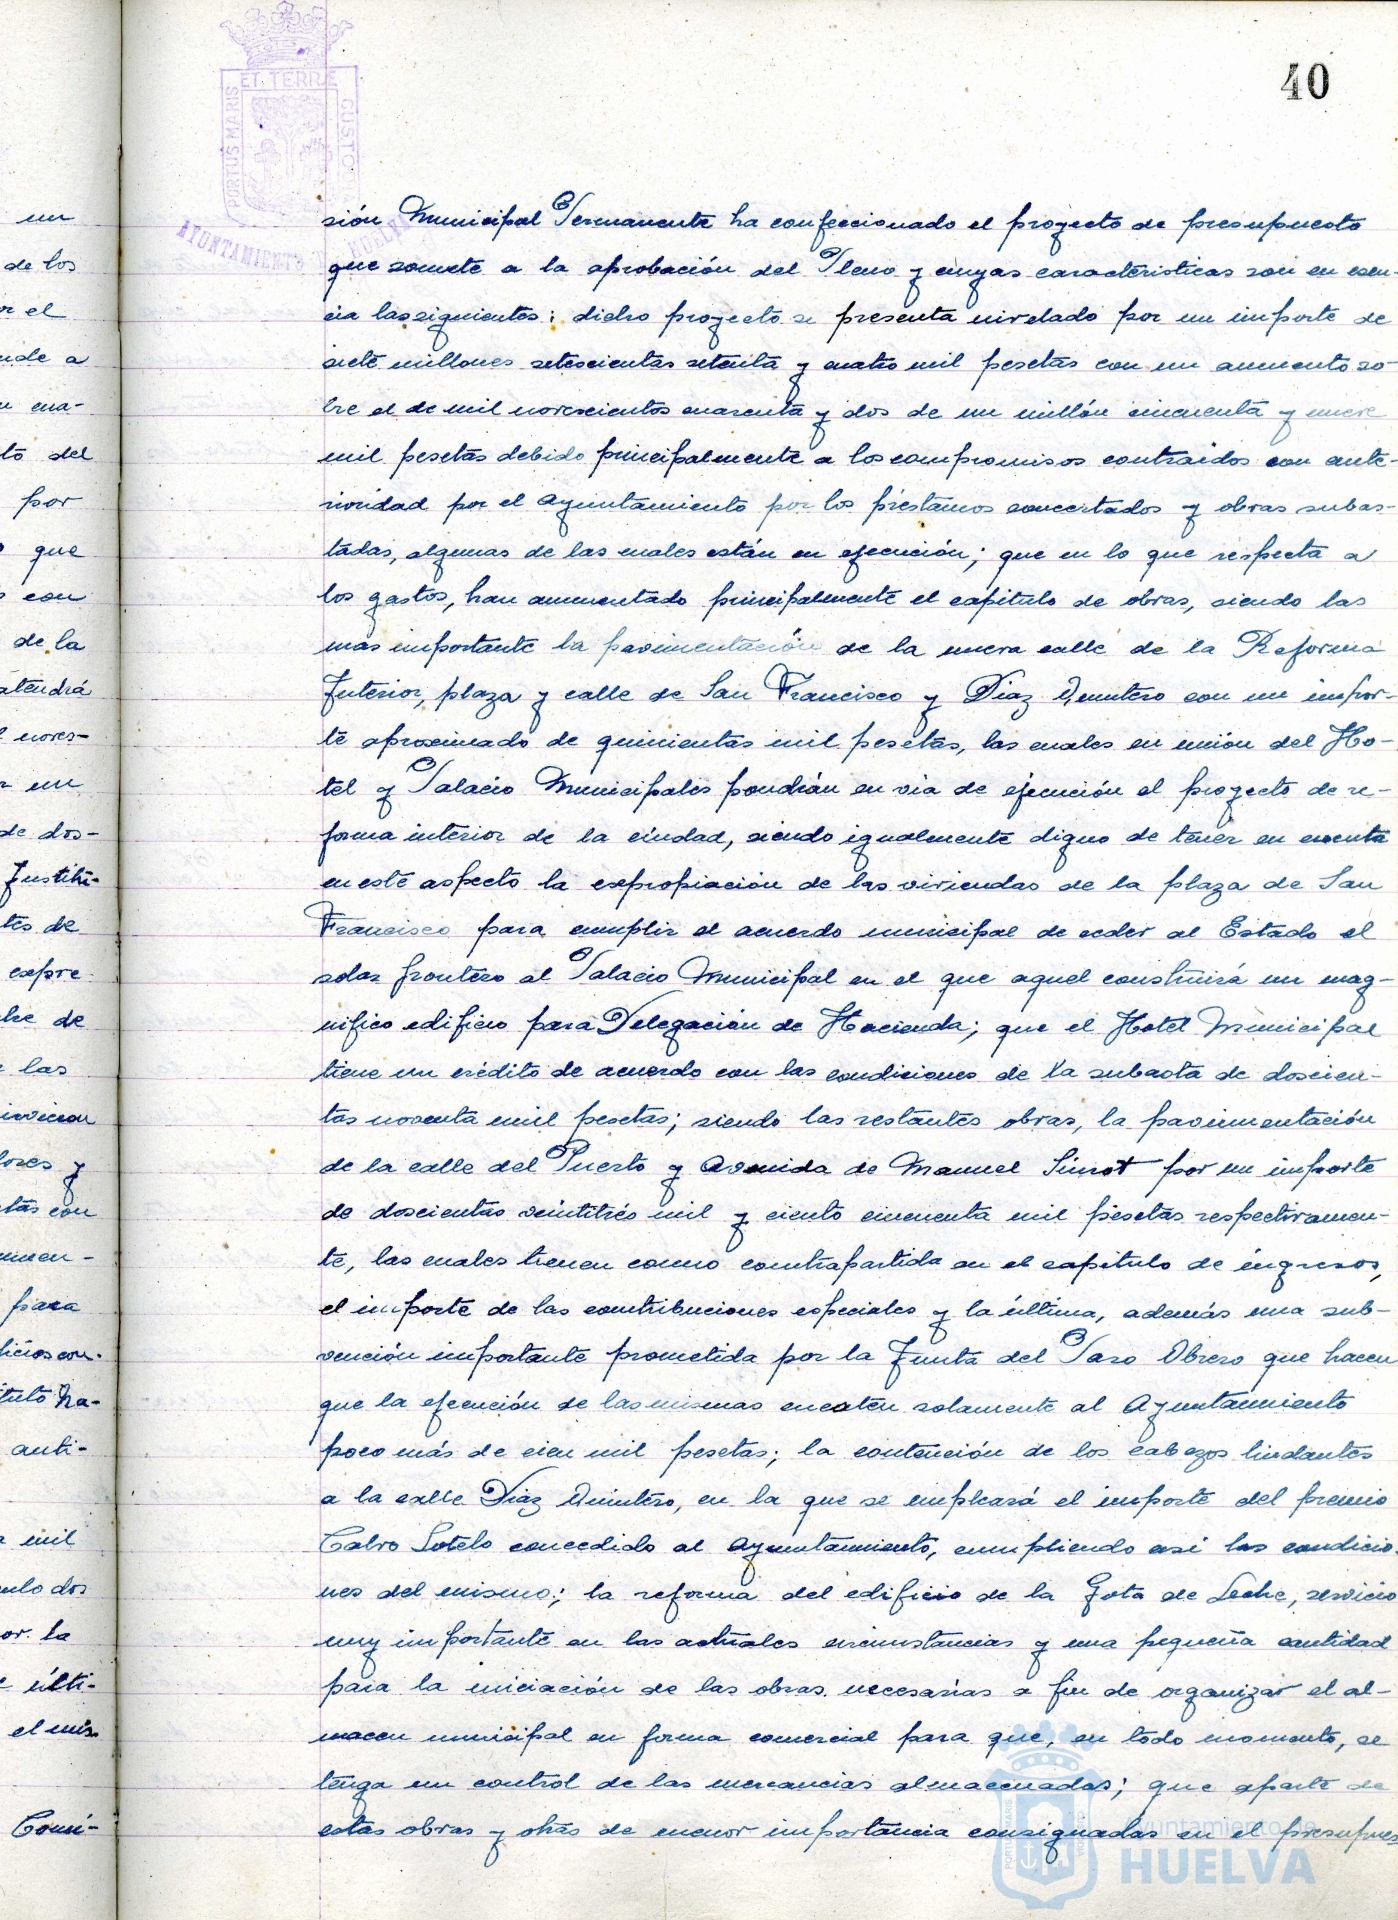 40
PORTUS MARIS ET TERRE CUSTODIA
AYUNTAMIENTO DE HUELVA
sión Municipal Permanente ha confeccionado el proyecto de presupuesto
que somete a la aprobación del Pleno y cuyas características son en esen-
cia las siguientes: dicho proyecto se presenta nivelado por un importe de
siete millones setescientas setenta y cuatro mil pesetas con un aumento so-
bre el de mil novescientos cuarenta y dos de un millón cincuenta y nueve
mil pesetas debido principalmente a los compromisos contraidos con ante-
rioridad por el Ayuntamiento por los préstamos concertados y obras subas-
tadas, algunas de las cuales están en ejecución; que en lo que respecta a
los gastos, han aumentado principalmente el capitulo de obras, siendo las
mas importante la pavimentación de la nueva calle de la Reforma
Interior, plaza y calle de San Francisco y Diaz Quintero con un impor-
te aproximado de quinientas mil pesetas, las cuales en unión del Ho-
tel y Palacio Municipales pondrán en via de ejecución el proyecto de re-
forma interior de la ciudad, siendo igualmente digno de tener en cuenta
en este aspecto la expropiación de las viviendas de la plaza de San
Francisco para cumplir el acuerdo municipal de ceder al Estado el
solar frontero al Palacio Municipal en el que aquel construirá un mag-
nifico edificio para Delegación de Hacienda; que el Hotel Municipal
tiene un crédito de acuerdo con las condiciones de la subasta de doscien-
tas noventa mil pesetas; siendo las restantes obras, la pavimentación
de la calle del Puerto y Avenida de Manuel Siurot por un importe
de doscientas veintitrés mil y ciento cincuenta mil pesetas respectivamen-
te, las cuales tienen como contrapartida en el capitulo de ingresos,
el importe de las contribuciones especiales y la última, además una sub-
vención importante prometida por la Junta del Paro Obrero que hacen
que la ejecución de las mismas cuesten solamente al Ayuntamiento
poco más de cien mil pesetas; la contención de los cabezos lindantes
a la calle Diaz Quintero, en la que se empleará el importe del premio
Calvo Sotelo concedido al Ayuntamiento, cumpliendo asi las condicio-
nes del mismo; la reforma del edificio de la Gota de Leche, servicio
muy importante en las actuales circunstancias y una pequeña cantidad
para la iniciación de las obras necesarias a fin de organizar el al-
macen municipal en forma comercial para que, en todo momento, se
tenga un control de las mercancias almacenadas; que aparte de
estas obras y otras de menor importancia consignadas en el presupues
un
de los
or el
nde a
cua-
to del
por
que
con
de la
atendrá
noves-
un
de dos-
Instit-
tes de
expre
de
las
lores y
tas con
para
ficios con-
ituto Na-
anti-
mil
ulo dos
or la
últi-
el mis-
Comi-
Ayuntamiento de
HUELVA